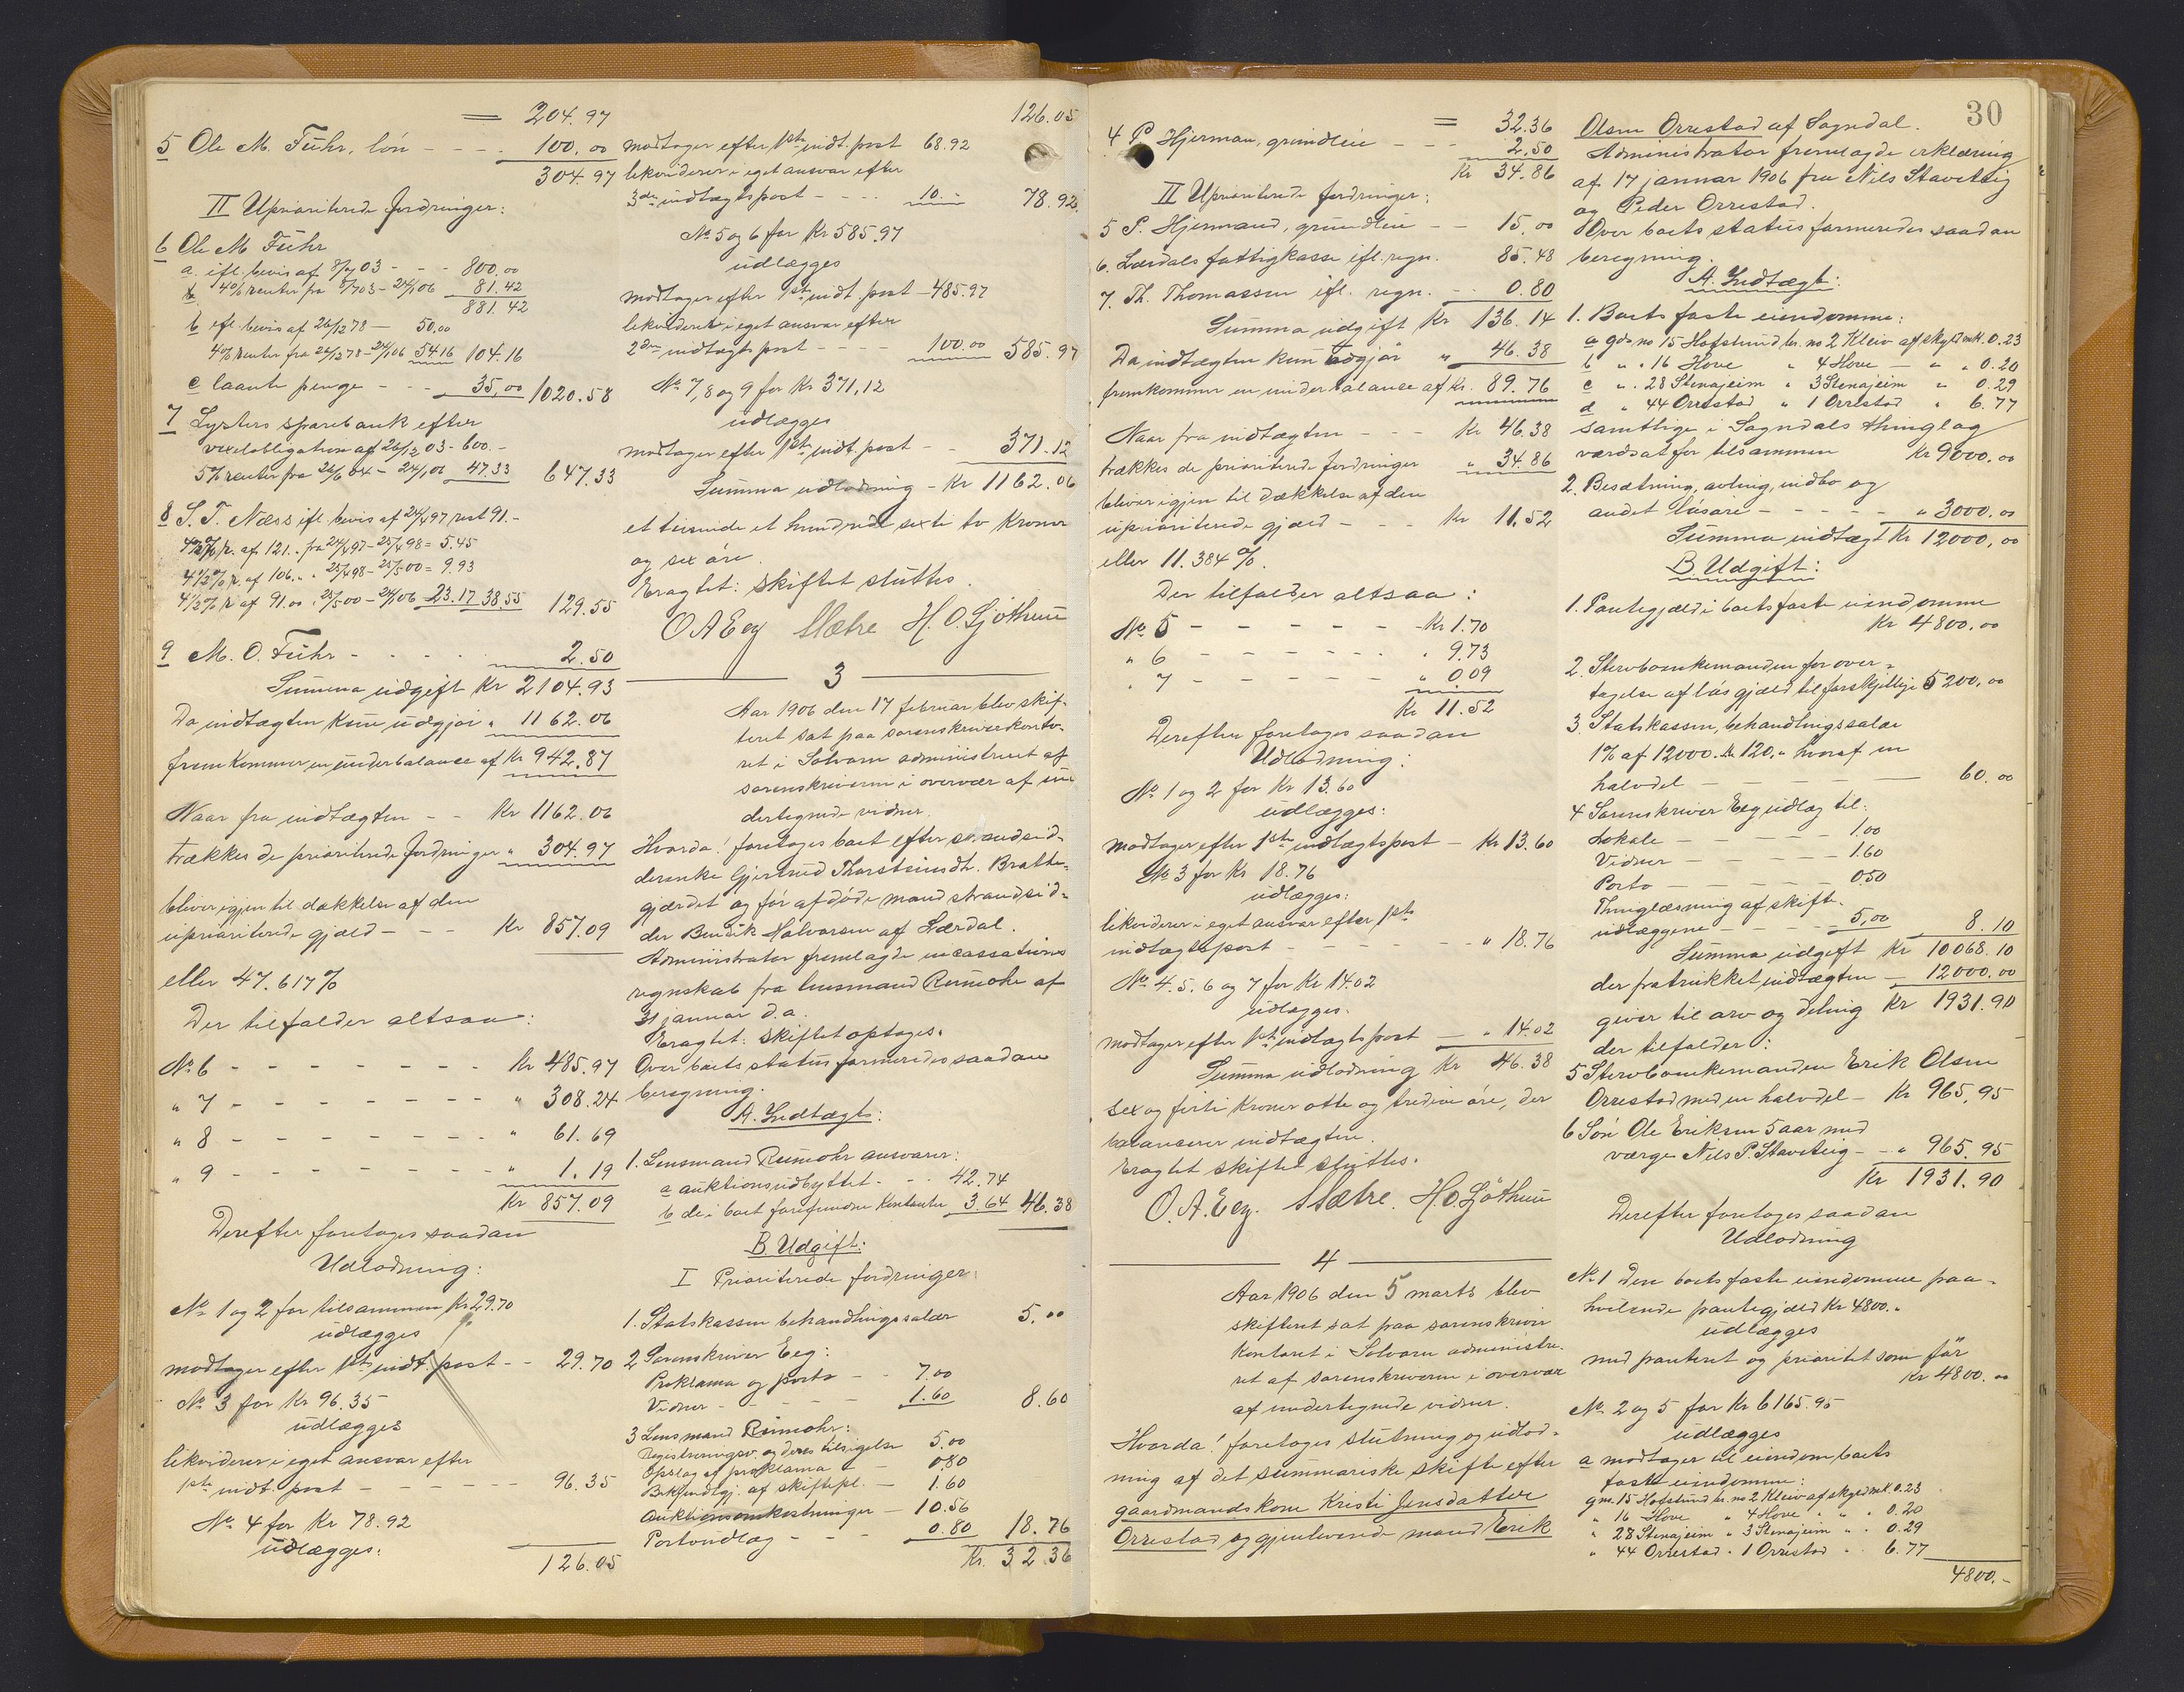 = 204.97
5 Ole M. Führ, lön - - - 100.00
304.97
II Uprioriterede fordringer:
6 Ole M Führ
a. ifl. bevis af 8/7 03 - - - 800.00
4% renter fra 8/7 03 - 24/1 06 81.42
881.42
b ifl. bevis af 26/2 78 - 50.00
4% renter fra 26/2 78 - 24/1 06 54.16 104.16
c laante penge - - - 35,00 1020.58
7 Lysters sparebank efter
vexelobligation af 26/2 03 - 600.-
5% renter fra 26/6 04 - 24/1 06 47.33 647.33
8 S. T. Næss ifl. bevis af 24/4 97 rest 91.-
4 1/2 % r. af 121.- fra 24/4 97 - 25/4 98 = 5.45
4 1/2 % r. af 106. " 25/4 98 - 25/5 00 = 9.93
4 1/2 % r. af 91.00 " 25/5 00 - 24/1 06 23.17 38.55 129.55
9 M. O. Führ - - - - 2.50
Summa udgift Kr 2104.93
Da indtægten kun udgjör " 1162.06
fremkommer en underbalance af Kr 942.87
Naar fra indtægten - - Kr 1162.06
trækkes de prioriterede fordringer " 304.97
bliver igjen til dækkelse af den
uprioriterede gjæld - - - Kr 857.09
eller 47.617%
Der tilfalder altsaa:
No 6 - - - - - - - Kr 485.97
" 7 - - - - - - - " 308.24
" 8 - - - - - - - " 61.69
" 9 - - - - - - - " 1.19
Kr 857.09
Derefter foretoges saadan
Udlodning:
No 1 og 2 for tilsammen Kr 29.70
udlægges
modtager efter 1ste indt. post - - 29.70
No 3 for Kr 96.35
udlægges
likviderer i eget ansvar efter
1ste indt. post - - - - - 96.35
No 4 for Kr 78.92
udlægges:
126.05
126.05
modtager efter 1ste indt. post 68.92
likviderer i eget ansvar efter
3die indtægtspost - - - 10.- 78.92
No 5 og 6 for Kr 585.97
udlægges
modtager efter 1ste indt. post - 485.97
likviderer i eget ansvar efter
2den indtægtspost - - - 100.00 585.97
No 7, 8 og 9 for Kr 371,12
udlægges
modtager efter 1ste indt. post - 371.12
Summa udlodning - Kr 1162.06
et tusinde et hundrede sexti to kroner
og sex öre.
Eragtet: Skiftet sluttes.
O A Eeg Sætre H. O. Sjöthun
3
Aar 1906 den 17 februar blev skif-
teret sat paa sorenskriverkonto-
ret i Solvorn administreret af
sorenskriveren i overvær af un-
dertegnede vidner.
Hvorda! foretoges boet efter strandsid-
derenke Gjertrud Thorsteinsdt. Bratte-
gjærdet og för afdöde mand strandsid-
der Bendik Halvorsen af Lærdal.
Administrator fremlagde incassations
regnskab fra lensmand Rumohr af
31 januar d.a.
Eragtet: Skiftet optages.
Over boets status formeredes saadan
beregning.
A. Indtægt:
1. Lensmand Rumohr ansvarer:
a auktionsudbyttet - - - 42.74
b de i boet forefundne kontanter 3.64 46.38
B Udgift:
I Prioriterede fordringer:
1. Statskassen behandlingssalær 5.00
2 Sorenskriver Eeg:
Proklama og porto - - 7.00
Vidner - - - - 1.60 8.60
3 Lensmand Rumohr:
Registreringsv. og deres tilsigelse 5.00
Opslag af proklama - - 0.80
Bekjendtgj. af skiftepl. - 1.60
Auktionsomkostninger - 10.56
Portoudlæg - - 0.80 18.76
Kr. 32.36
= 32.36
4 P. Hjerman, grundleie - - - 2.50
Kr 34.86
II Uprioriterede fordringer:
5 P. Hjermand, grundleie - - 15.00
6. Lærdals fattigkasse ifl. regn. 85.48
7. Th. Thomassen ifl. regn. - - 0.80
Summa udgift Kr 136.14
Da indtægten kun udgjör " 46.38
fremkommer en underbalance af Kr. 89.76
Naar fra indtægten - - - Kr 46.38
trækkes de prioriterede fordringer " 34.86
bliver igjen til dækkelse af den
uprioriterede gjæld - - - Kr 11.52
eller 11.384 %.
Der tilfalder altsaa:
No 5 - - - - - - Kr 1.70
" 6 - - - - - - " 9.73
" 7 - - - - - - " 0.09
Kr 11.52
Derefter foretoges saadan
Udlodning:
No 1 og 2 for Kr 13.60
udlægges:
modtager efter 1ste indtægtspost - Kr 13.60
No 3 for Kr 18.76
udlægges:
likviderer i eget ansvar efter 1ste
indtægtspost - - - - - " 18.76
No 4. 5. 6 og 7 for Kr 14.02
udlægges.
modtager efter 1ste indtægtspost - " 14.02
Summa udlodning Kr 46.38
sex og firti kroner otte og tredive öre, der
balancerer indtægten.
Eragtet skiftet sluttes.
O. A. Eeg. Sætre. H. O. Sjöthun
4
Aar 1906 den 5 marts blev
skifteret sat paa sorenskriver
kontoret i Solvorn administre-
ret af sorenskriveren i overvær
af undertegnede vidner.
Hvorda! foretoges slutning og udlod-
ning af det summariske skifte efter
gaardmandskone Kristi Jensdatter
Orrestad og gjenlevende mand Erik
30
Olsen Orrestad af Sogndal.
Administrator fremlagde erklæring
af 17 januar 1906 fra Nils Staveteig
og Peder Orrestad.
Over boets status formeredes saadan
beregning.
A. Indtægt:
1. Boets faste eiendomme:
a gds no 15 Hofslund br. no 2 Kleiv af skyld mk. 0.23
b " " 16 Hove " 4 Hove - " " 0.20
c " " 28 Stenajeim " 3 Stenajeim " 0.29
d " 44 Orrestad " 1 Orrestad " 6.77
samtlige i Sogndals thinglag
værdsat for tilsammen Kr 9000.00
2. Besætning, avling, indbo og
andet lösöre - - - - - " 3000.00
Summa indtægt Kr 12000,00
B. Udgift:
1. Pantegjæld i boets faste eiendomme
Kr 4800.00
2. Stervboenkemanden for over-
tagelse af lös gjæld til forskjellige 5200,00
3. Statskassen, behandlingssalær
1% af 12000. Kr 120." hvoraf en
halvdel - - - 60.00
4 Sorenskriver Eeg udlæg til:
Lokale - - - - 1.00
Vidner - - - - 1.60
Porto - - - - 0.50
Thinglæsning af skifte-
udlæggene - - - - 5,00 8.10
Summa udgift Kr 10068.10
der fratrukket indtægten - 12000.00
giver til arv og deling Kr 1931.90
der tilfalder:
5 Stervboenkemanden Erik Olsen
Orrestad med en halvdel - Kr 965,95
6 Sön Ole Eriksen 5 aar med
værge Nils P. Staveteig - - " 965.95
Kr 1931.90
Derefter foretoges saadan
Udlodning
No 1 Den boets faste eiendomme paa-
hvilende pantegjæld Kr 4800."
udlægges
med panteret og prioritet som för
Kr 4800.00
No 2 og 5 for Kr 6165.95
udlægges
a modtager til eiendom boets
faste eiendomme:
g no. 15 Hofslund br. no 2 Kleiv af skyld mk. 0.23
" 16 Hove " 4 Hove " " " 0.20
" 28 Stenajeim " 3 Stenajeim " " 0.29
" 44 Orrestad " 1 Orrestad " " 6.77
4800.-